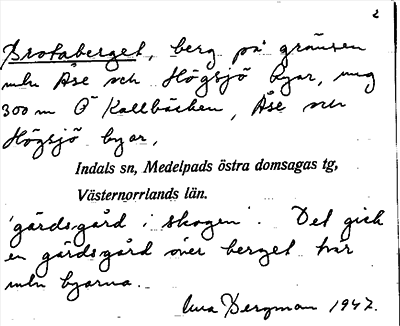 2
Brotaberget, berg på gränsen
mln Åse och Högsjö byar, ung
300 m Ö Kallbäcken, Åse och
Högsjö byar,
Indals sn, Medelpads östra domsagas tg,
Västernorrlands län.
'gärdsgård i skogen'. Det gick
en gärdsgård över berget här
mln byarna.
Bergman 1947.